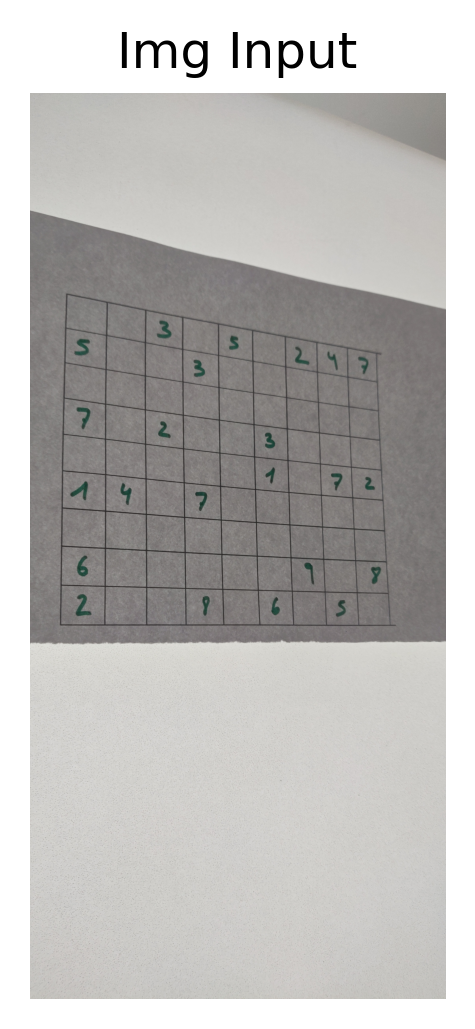 Img Input
3 5 2 4 7
5 3
7 2 3
1 7 2
1 4 7
6 9 8
2 8 6 5